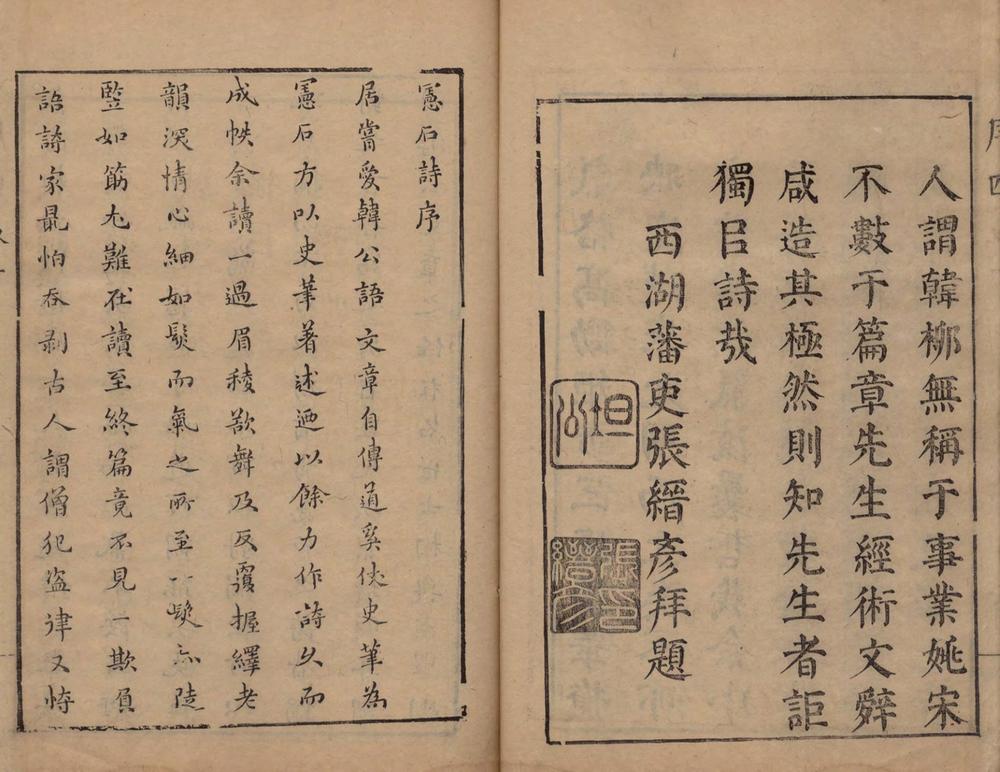 人謂韓柳無稱于事業姚宋
不數于篇章先生經術文辭
咸造其極然則知先生者詎
獨㠯詩哉
西湖藩吏張縉彥拜題
坦公
張縉彥印
憲石詩序
居嘗愛韓公語文章自傳道奚仗史筆為
憲石方以史筆著述迺以餘力作詩久而
成帙余讀一過眉稜欲舞及反覆握繹老
韻深情心細如髮而氣之所至而髮亦陡
豎如筋尤難在讀至終篇竟不見一欺負
語詩家最怕吞剥古人謂僧犯盗律又恃